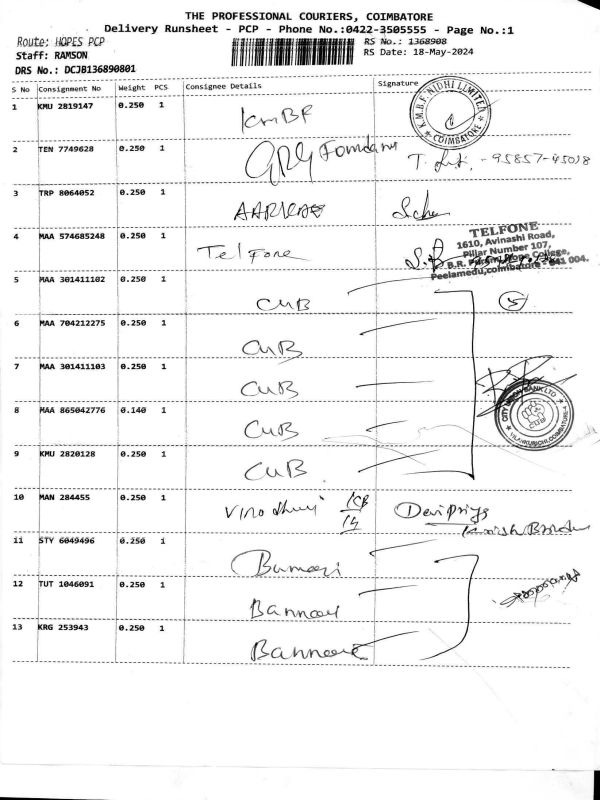 THE PROFESSIONAL COURIERS, COIMBATORE
Delivery Runsheet - PCP - Phone No.:0422-3505555 - Page No.:1
Route: HOPES PCP
RS No.: 1368908
Staff: RAMSON
RS Date: 18-May-2024
DRS No.: DCJB136890801
S No Consignment No Weight PCS Consignee Details Signature
1 KMU 2819147 0.250 1 KMBF
K.M.B.F. NIDHI LIMITED COIMBATORE
2 TEN 7749628 0.250 1 GRG
3 TRP 8064052 0.250 1
4 MAA 574685248 0.250 1 Telfone
TELFONE
1610, Avinashi Road,
Pillar Number 107,
Peelamedu,coimbatore - 641 004.
5 MAA 301411102 0.250 1 CUB 5
6 MAA 704212275 0.250 1 CUB
7 MAA 301411103 0.250 1 CUB
8 MAA 865042776 0.140 1 CUB
CITY UNION BANK LTD
9 KMU 2820128 0.250 1 CUB
10 MAN 284455 0.250 1
11 STY 6049496 0.250 1
12 TUT 1046091 0.250 1
13 KRG 253943 0.250 1